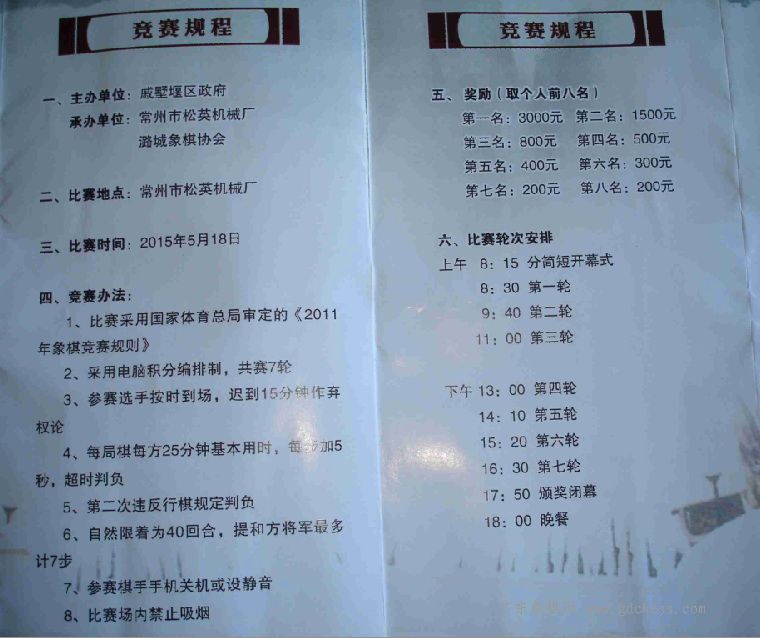 竞赛规程
一、主办单位：戚墅堰区政府
承办单位：常州市松英机械厂
潞城象棋协会
二、比赛地点：常州市松英机械厂
三、比赛时间：2015年5月18日
四、竞赛办法：
1、比赛采用国家体育总局审定的《2011
年象棋竞赛规则》
2、采用电脑积分编排制，共赛7轮
3、参赛选手按时到场，迟到15分钟作弃
权论
4、每局棋每方25分钟基本用时，每步加5
秒，超时判负
5、第二次违反行棋规定判负
6、自然限着为40回合，提和方将军最多
计7步
7、参赛棋手手机关机或设静音
8、比赛场内禁止吸烟
竞赛规程
五、奖励（取个人前八名）
第一名：3000元 第二名：1500元
第三名：800元 第四名：500元
第五名：400元 第六名：300元
第七名：200元 第八名：200元
六、比赛轮次安排
上午 8：15 分简短开幕式
8：30 第一轮
9：40 第二轮
11：00 第三轮
下午 13：00 第四轮
14：10 第五轮
15：20 第六轮
16：30 第七轮
17：50 颁奖闭幕
18：00 晚餐
www.gdchess.com